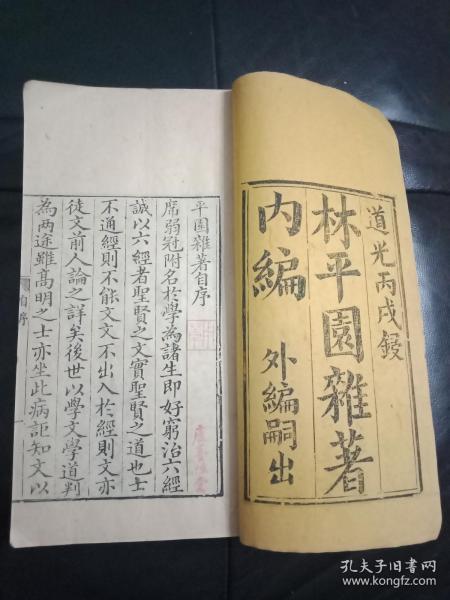 道光丙戌鋟
林平園雜著
内編
外編嗣出
平園雜著自序
席弱冠附名於學為諸生即好窮治六經
誠以六經者聖賢之文實聖賢之道也士
不通經則不能文文不出入於經則文亦
徒文前人論之詳矣後世以學文學道判
為两途雖高明之士亦坐此病詎知文以
自序
孔夫子旧书网
www.kongfz.com